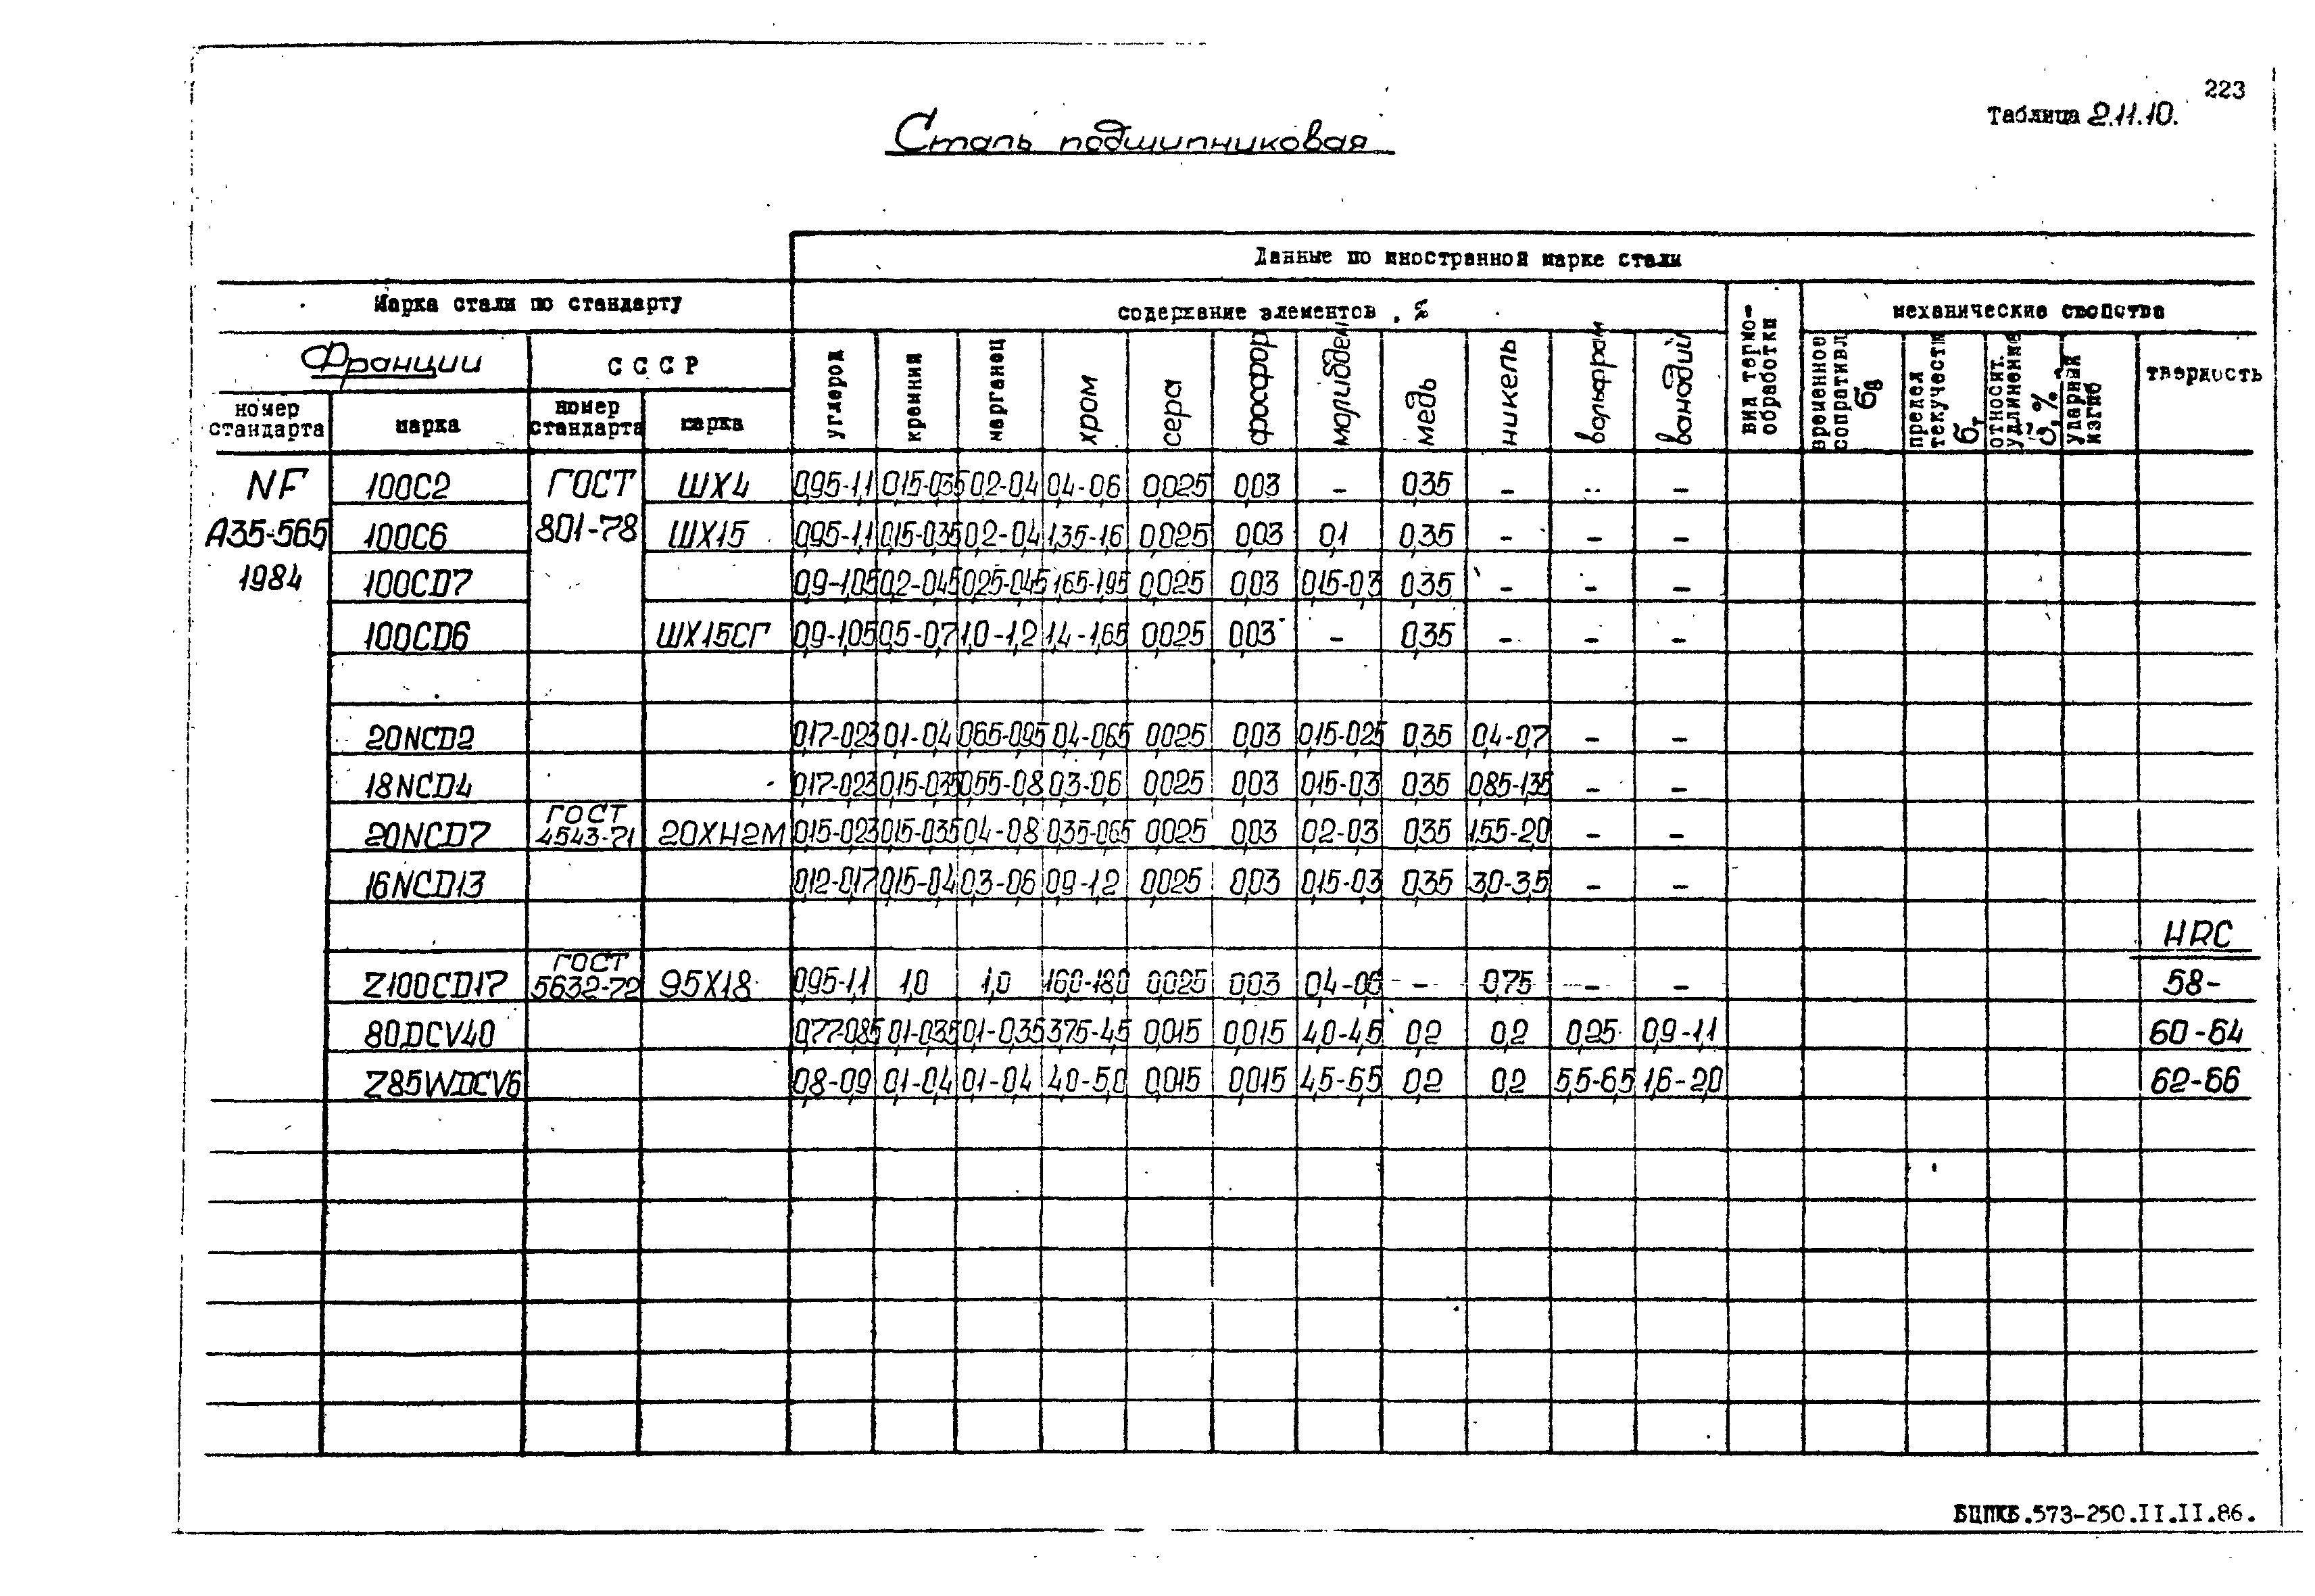 223
Таблица 2.11.10.
Сталь подшипниковая
Данные по иностранной марке стали
Марка стали по стандарту
содержание элементов, %
вид термо-обработки
механические свойства
Франции
СССР
углерод
кремний
марганец
хром
сера
фосфор
молибден
медь
никель
вольфрам
ванадий
временное сопративл. σв
предел текучести σт
относит. удлинение δ, %
ударный изгиб
твердость
номер стандарта
марка
номер стандарта
марка
NF 100С2 ГОСТ ШХ4 0,95-1,1 0,15-0,35 0,2-0,4 0,4-0,6 0,025 0,03 - 0,35 - - -
А35-565 100С6 801-78 ШХ15 0,95-1,1 0,15-0,35 0,2-0,4 1,35-1,6 0,025 0,03 0,1 0,35 - - -
1984 100CD7 0,9-1,05 0,2-0,45 0,25-0,45 1,65-1,95 0,025 0,03 0,15-0,3 0,35 - - -
100CD6 ШХ15СГ 0,9-1,05 0,5-0,7 1,0-1,2 1,4-1,65 0,025 0,03 - 0,35 - - -
20NCD2 0,17-0,23 0,1-0,4 0,65-0,95 0,4-0,65 0,025 0,03 0,15-0,25 0,35 0,4-0,7 - -
18NCD4 0,17-0,23 0,15-0,35 0,55-0,8 0,3-0,6 0,025 0,03 0,15-0,3 0,35 0,85-1,35 - -
20NCD7 ГОСТ 4543-71 20ХН2М 0,15-0,23 0,15-0,35 0,4-0,8 0,35-0,65 0,025 0,03 0,2-0,3 0,35 1,55-2,0 - -
16NCD13 0,12-0,17 0,15-0,4 0,3-0,6 0,9-1,2 0,025 0,03 0,15-0,3 0,35 3,0-3,5 - -
HRC
Z100CD17 ГОСТ 5632-72 95Х18 0,95-1,1 1,0 1,0 16,0-18,0 0,025 0,03 0,4-0,6 - 0,75 - - 58-
80DCV40 0,77-0,85 0,1-0,35 0,1-0,35 3,75-4,5 0,015 0,015 4,0-4,5 0,2 0,2 0,25 0,9-1,1 60-64
Z85WDCV6 0,8-0,9 0,1-0,4 0,1-0,4 4,0-5,0 0,015 0,015 4,5-5,5 0,2 0,2 5,5-6,5 1,6-2,0 62-66
БЦПКБ.573-250.II.II.86.